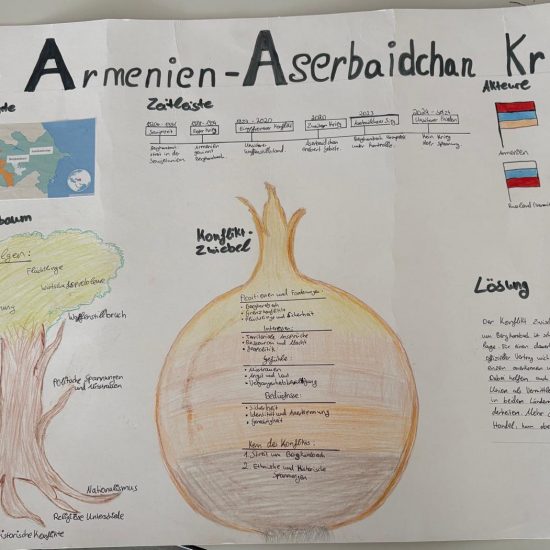 Armenien-Aserbaidchan Kr
Zeitleiste
1920-1991
1988-1994
1994-2020
2020
2023
2024-2025
Sowjetzeit
Erster Krieg
Eingefrorener Konflikt
Zweiter Krieg
Unsicherer Frieden
Bergkarabach
Armenien
gewinnt
Bergkarabach
Unsicherer
Waffenstillstand
Aserbaidchan
erobert Gebiete
Bergkarabach komplett
unter Kontrolle
Kein Krieg
aber Spannung
Akteure
Armenien
Russland
baum
lgen:
Flüchtlinge
Wirtschaftsprobleme
Waffenstillbruch
Politische Spannungen
und Misstrauen
Nationalismus
Religiöse Unterschiede
historische Konflikte
Konflikt-
Zwiebel
Positionen und Forderungen:
• Bergkarabach
• Grenzkonflikte
• Flüchtlinge und Sicherheit
Interessen:
• Territoriale Ansprüche
• Ressourcen und Macht
• Geopolitik
Gefühle:
• Misstrauen
• Angst und Wut
Bedürfnisse:
• Sicherheit
• Identität und Anerkennung
• Gerechtigkeit
Kern des Konflikts:
1. Streit um Bergkarabach
2. Ethnische und Historische
Spannungen
Lösung
Der Konflikt zwisc
um Bergkarabach ist
lage für einen dauerh
offizieller Vertrag wich
enzen anerkennen u
Dabei helfen und
Union als Vermittle
in beiden Ländern
arbeiten. Mehr
Handel, kann aber